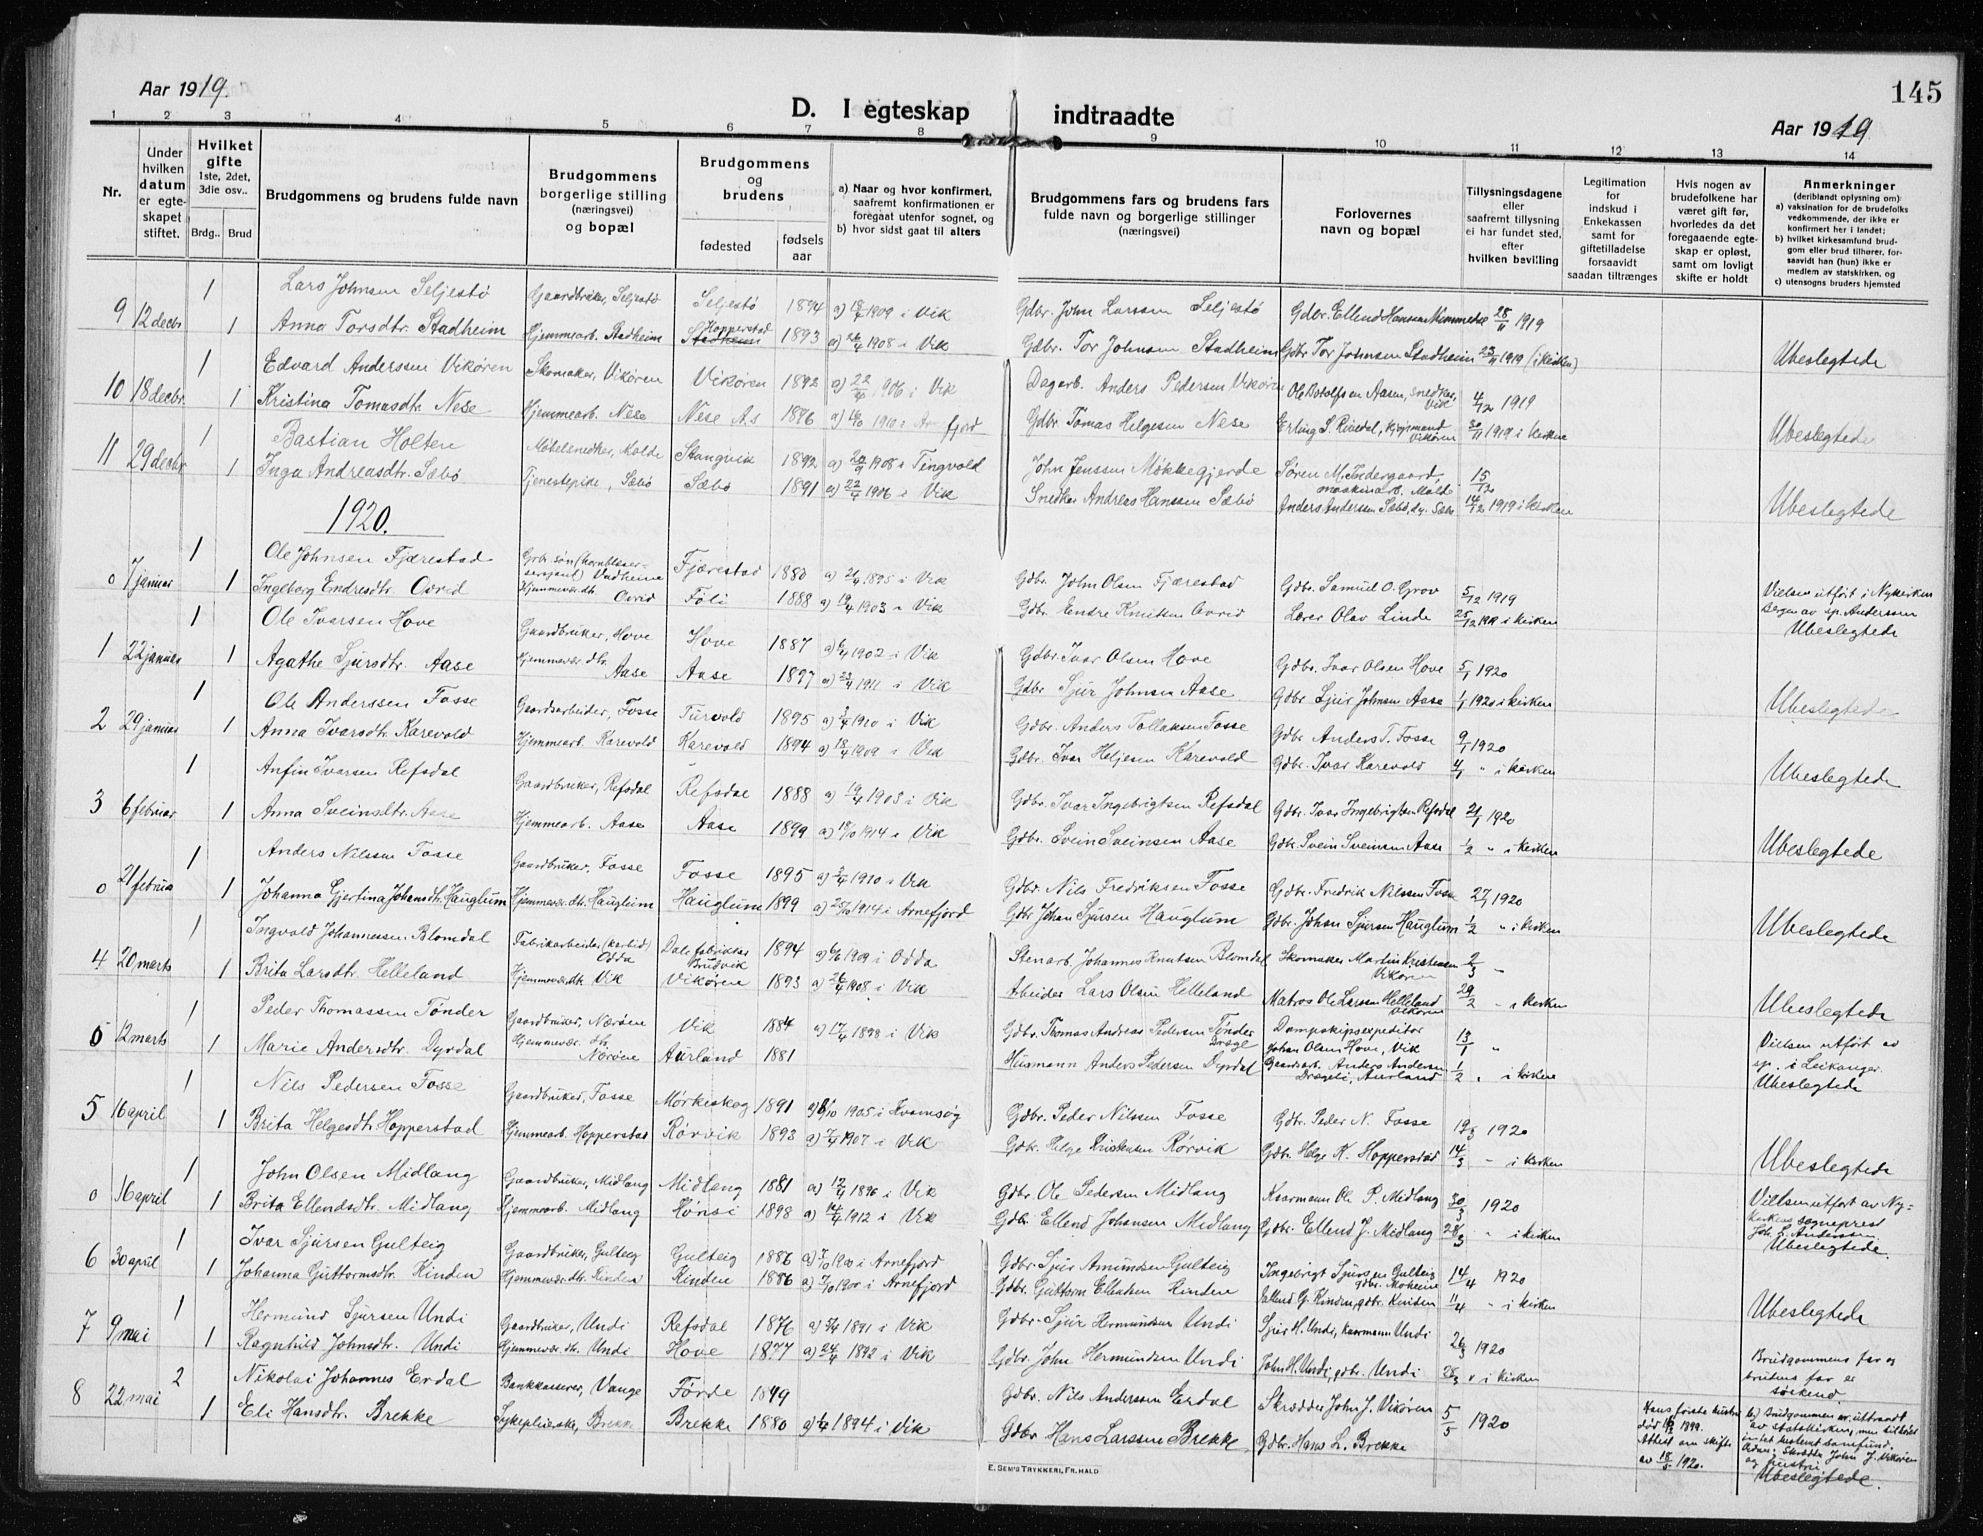 145
Aar 1919.
D. I egteskap indtraadte
Aar 1919.
1 2 3 4 5 6 7 8 9 10 11 12 13 14
Nr.
Under hvilken datum er egteskapet stiftet.
Hvilket gifte 1ste, 2det, 3die osv..
Brdg.. Brud
Brudgommens og brudens fulde navn
Brudgommens borgerlige stilling (næringsvei) og bopæl
Brudgommens og brudens
fødested
fødsels aar
a) Naar og hvor konfirmert, saafremt konfirmationen er foregaat utenfor sognet, og
b) hvor sidst gaat til alters
Brudgommens fars og brudens fars fulde navn og borgerlige stillinger (næringsvei)
Forlovernes navn og bopæl
Tillysningsdagene eller saafremt tillysning ei har fundet sted, efter hvilken bevilling
Legitimation for indskud i Enkekassen samt for giftetilladelse forsaavidt saadan tiltrænges
Hvis nogen av brudefolkene har været gift før, hvorledes da det foregaaende egteskap er opløst, samt om lovligt skifte er holdt
Anmerkninger (deriblandt oplysning om):
a) vaksination for de brudefolks vedkommende, der ikke er konfirmert her i landet;
b) hvilket kirkesamfund brudgom eller brud tilhører, forsaavidt han (hun) ikke er medlem av statskirken, og
c) utensogns bruders hjemsted
1 Lars Johnsen Seljestø Gaardbruker, Seljestø Seljestø 1894 a) 18/4 1909 i Vik Gdbr. John Larssen Seljestø Gdbr. Ellend Hansen Nummedal 28/11 1919
9 12 decbr 1 Anna Torsdtr. Stadheim Hjemmearb. Stadheim Hopperstad Stadheim 1893 a) 26/4 1908 i Vik Gdbr. Tor Johnsen Stadheim Gdbr Tor Johnsen Stadheim 23/11 1919 (i kirken) Ubeslegtede
1 Edvard Anderssen Vikøren Skomaker, Vikøren Vikøren 1892 a) 22/4 1906 i Vik Dagarb. Anders Pedersen Vikøren Ole Botolfsen Aasen, snedker, Vik 4/12 1919
10 18 decbr. 1 Kristina Tomasdtr. Nese Hjemmearb. Nese Nese A.s 1886 a) 16/10 1910 i Arnfjord Gdbr. Tomas Helgesen Nese Erling S. Rinedal, Vikøren 30/11 1919 i kirken Ubeslegtede
1 Bastian Holten Møbelsnedker, Molde Stangvik 1892 a) 20/9 1908 i Tingvold John Jenssen Møkkegjerde Søren M. Indergaard, maskinarb. Molde 15/12
11 29 decbr 1 Inga Andreasdtr. Sæbø Tjenestepike, Sæbø Sæbø 1891 a) 22/4 1906 i Vik Snedker Andreas Hanssen Sæbø Anders Anderssen Sæbø, Sæbø 14/12 1919 i kirken Ubeslegtede
1920.
1 Ole Johnsen Fjærestad Gbr. søn (hornblæsersersjant) Fjærestad 1880 a) 1895 i Vik Gdbr. John Olsen Fjærestad Gdbr. Samuel O. Grov 5/12 1919 Vielsen utført i Nykirken
0 7 januar 1 Ingeborg Endresdtr. Ovrid Hjemmevær. dtr. Ovrid Føli 1888 a) 19/4 1903 i Vik Gdbr. Endre Knutsen Ovrid Lærer Olav Linde 25/12 1919 i kirken Bergen av sp. Anderssen Ubeslegtede
1 Ole Ivarsen Hove Gaardbruker, Hove Hove 1887 a) 6/4 1902 i Vik Gdbr. Ivar Olsen Hove Gdbr. Ivar Olsen Hove 5/1 1920
1 22 januar 1 Agathe Sjursdtr. Aase Hjemmevær. dtr. Aase Aase 1897 a) 23/4 1911 i Vik Gdbr. Sjur Johnsen Aase Gdbr Sjur Johnsen Aase 1/1 1920 i kirken Ubeslegtede
1 Ole Anderssen Fosse Gaardsarbeider, Fosse Turvold 1895 a) 3/4 1910 i Vik Gdbr. Anders Tollaksen Fosse Gdbr Anders T. Fosse 9/1 1920
2 29 januar 1 Anna Ivarsdtr. Karevold Hjemmearb. Karevold Karevold 1894 a) 18/4 1909 i Vik Gdbr. Ivar Heljesen Karevold Gdbr. Ivar Karevold 4/1 " i kirken Ubeslegtede
1 Anfin Ivarsen Refsdal Gaardbruker, Refsdal Refsdal 1888 a) 19/4 1903 i Vik Gdbr. Ivar Ingebrigtsen Refsdal Gdbr. Ivar Ingebrigtsen Refsdal 21/1 1920
3 6 februar 1 Anna Sveinsdtr. Aase Hjemmearb. Aase Aase 1899 a) 18/10 1914 i Vik Gdbr. Svein Sveinsen Aase Gdbr. Svein Sveinsen Aase 1/2 " i kirken Ubeslegtede
1 Anders Nilssen Fosse Gaardbruker, Fosse Fosse 1895 a) 3/4 1910 i Vik Gdbr. Nils Fredriksen Fosse Gdbr. Fredrik Nilssen Fosse 27/1 1920
0 21 februar 1 Johanna Gjertina Johansdtr. Hauglum Hjemmevær. dtr. Hauglum Hauglum 1899 a) 25/10 1914 i Arnefjord Gdbr. Johan Sjursen Hauglum Gdbr. Johan Sjursen Hauglum 1/2 " i kirken Ubeslegtede
1 Ingvald Johannessen Blomdal Fabrikarbeider (karbid) Odda Dale fabrikker Bruvik 1894 a) 6/6 1909 i Odda Stenarb. Johannes Knutsen Blomdal Skomaker Martin Kristensen Vikøren 2/3 "
4 20 marts 1 Brita Larsdtr. Helleland Hjemmevær. dtr. Vik Vikøren 1893 a) 26/4 1908 i Vik Arbeider Lars Olsen Helleland Matros Ole Larssen Helleland Vikøren 29/2 " i kirken Ubeslegtede
1 Peder Thomassen Tønder Gaardbruker, Nærøen Vik 1884 a) 17/4 1898 i Vik Gdbr. Thomas Andreas Pedersen Tønder Dampskipsexpeditør Johan Olsen Hove, Vik 13/1 " Vielsen utført av
0 12 marts 1 Marie Andersdtr. Dyrdal Hjemmevær. dtr. Nærøen Aurland 1881 Husmann Anders Pedersen Dyrdal Gaardsarb. Anders Andersen Aurland 1/2 " i kirken sp. i Leikanger. Ubeslegtede
1 Nils Pedersen Fosse Gaardbruker, Fosse Mørkeskog 1891 a) 8/10 1905 i Kvamsøy Gdbr. Peder Nilssen Fosse Gdbr. Peder N. Fosse 19/3 1920
5 16 april 1 Brita Helgesdtr Hopperstad Hjemmearb. Hopperstad Rørvik 1893 a) 7/4 1907 i Vik Gdbr. Helge Kristensen Rørvik Gdbr. Helge K. Hopperstad 14/3 " i kirken Ubeslegtede
1 John Olsen Midlang Gaardbruker, Midlang Midlang 1881 a) 12/4 1896 i Vik Gdbr. Ole Pedersen Midlang Kaarmann Ole P. Midlang 30/3 1920 Vielsen utført av Ny-
0 16 april 1 Brita Ellendsdtr. Midlang Hjemmearb. Midlang Hønsi 1898 a) 14/4 1912 i Vik Gdbr. Ellend Johansen Midlang Gdbr. Ellend J. Midlang 28/3 " i kirken kirkens sogneprest Joh. L. Anderssen. Ubeslegtede.
1 Ivar Sjursen Gulteig Gaardbruker, Gulteig Gulteig 1886 a) 7/10 1900 i Arnefjord Gdbr. Sjur Amundsen Gulteig Ingebrigt Sjursen Gulteig gdbr. 14/4 1920
6 30 april 1 Johanna Guttormsdtr. Kinden Hjemmevær. dtr. Kinden Kinden 1886 a) 7/10 1900 i Arnefjord Gdbr. Guttorm Ellendsen Kinden Ellend G. Kinden, gdbr. Kinden 11/4 " i kirken Ubeslegtede
1 Hermund Sjursen Undi Gaardbruker, Undi Refsdal 1876 a) 5/4 1891 i Vik Gdbr. Sjur Hermundsen Undi Sjur H. Undi, kaarmann Undi 26/3 1920 Brudgommens far og
7 9 mai 1 Ragnhild Johnsdtr. Undi Hjemmevær. dtr. Undi Hove 1877 a) 24/4 1892 i Vik Gdbr. John Hermundsen Undi John H. Undi, gdbr. Undi 28/3 " i kirken brudens far er søskend
2 Nikolai Johannes Erdal Bankkasserer, Vange Førde 1849 Gdbr. Nils Anderssen Erdal Skrædder John J. Vikøren 5/5 1920
8 22 mai 1 Eli Hansdtr. Brekke Sykepleierske, Brekke Brekke 1880 a) 1894 i Vik Gdbr Hans Larssen Brekke Gdbr. Hans L. Brekke
Hans første hustru død 1899. Attest om skifte av 18/5 1920.
b) Brudgommen er uttraadt av statskirken, men tilhører intet bestemt samfund. Skrædder John J. Vikøren og hustru Ubeslegtede.
E. SEM'S TRYKKERI, FR.HALD